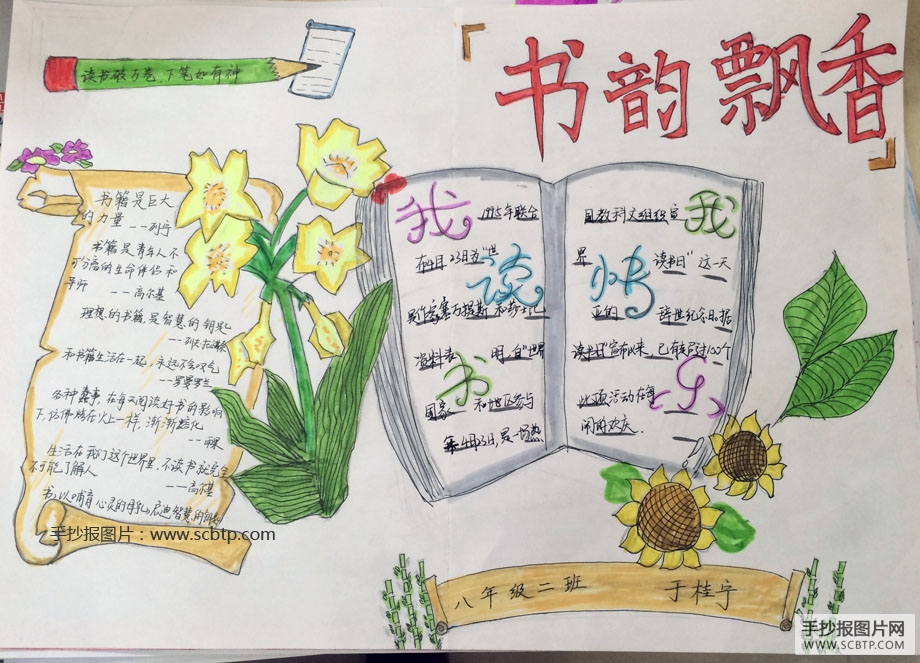 读书破万卷 下笔如有神
书韵飘香
书籍是巨大
的力量 ——列宁
书籍是青年人不
可分离的生命伴侣和
导师 ——高尔基
理想的书籍是智慧的钥匙
——列夫托尔斯泰
和书籍生活在一起，永远不会叹气
——罗曼罗兰
各种蠢事，在每天阅读好书的影响
下，仿佛烤在火上一样，渐渐熔化
生活在我们这个世界里，不读书就完全
不可能了解人
——高尔基
我 1995年联合
在4月23日为“世
读
资料表 明，自“世界
书
国家 和地区参与
年4月23日，是一场热
国教科文组织宣 我
界 读书日”这一天
读书日”宣布以来，已有超过100个
此项活动在每
闹的欢庆.
手抄报图片：www.scbtp.com
八年级二班 于桂宁
手抄报图片网
WWW.SCBTP.COM